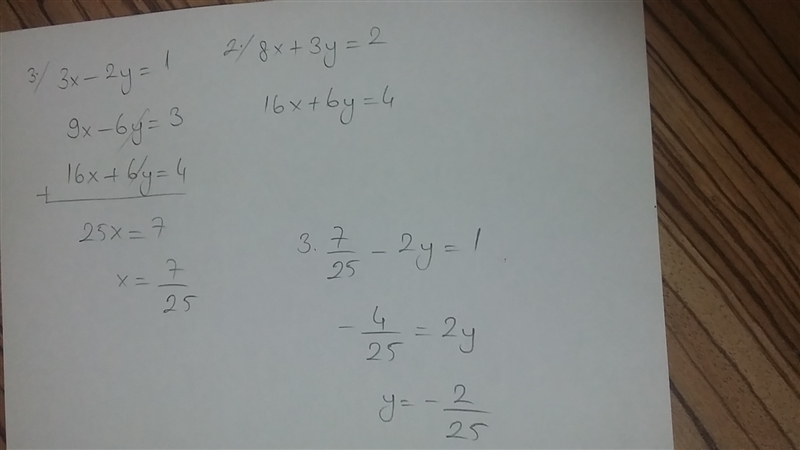 3·/ 3x - 2y = 1
9x - 6y = 3
+ 16x + 6y = 4
25x = 7
x = 7/25
2·/ 8x + 3y = 2
16x + 6y = 4
3. 7/25 - 2y = 1
- 4/25 = 2y
y = - 2/25